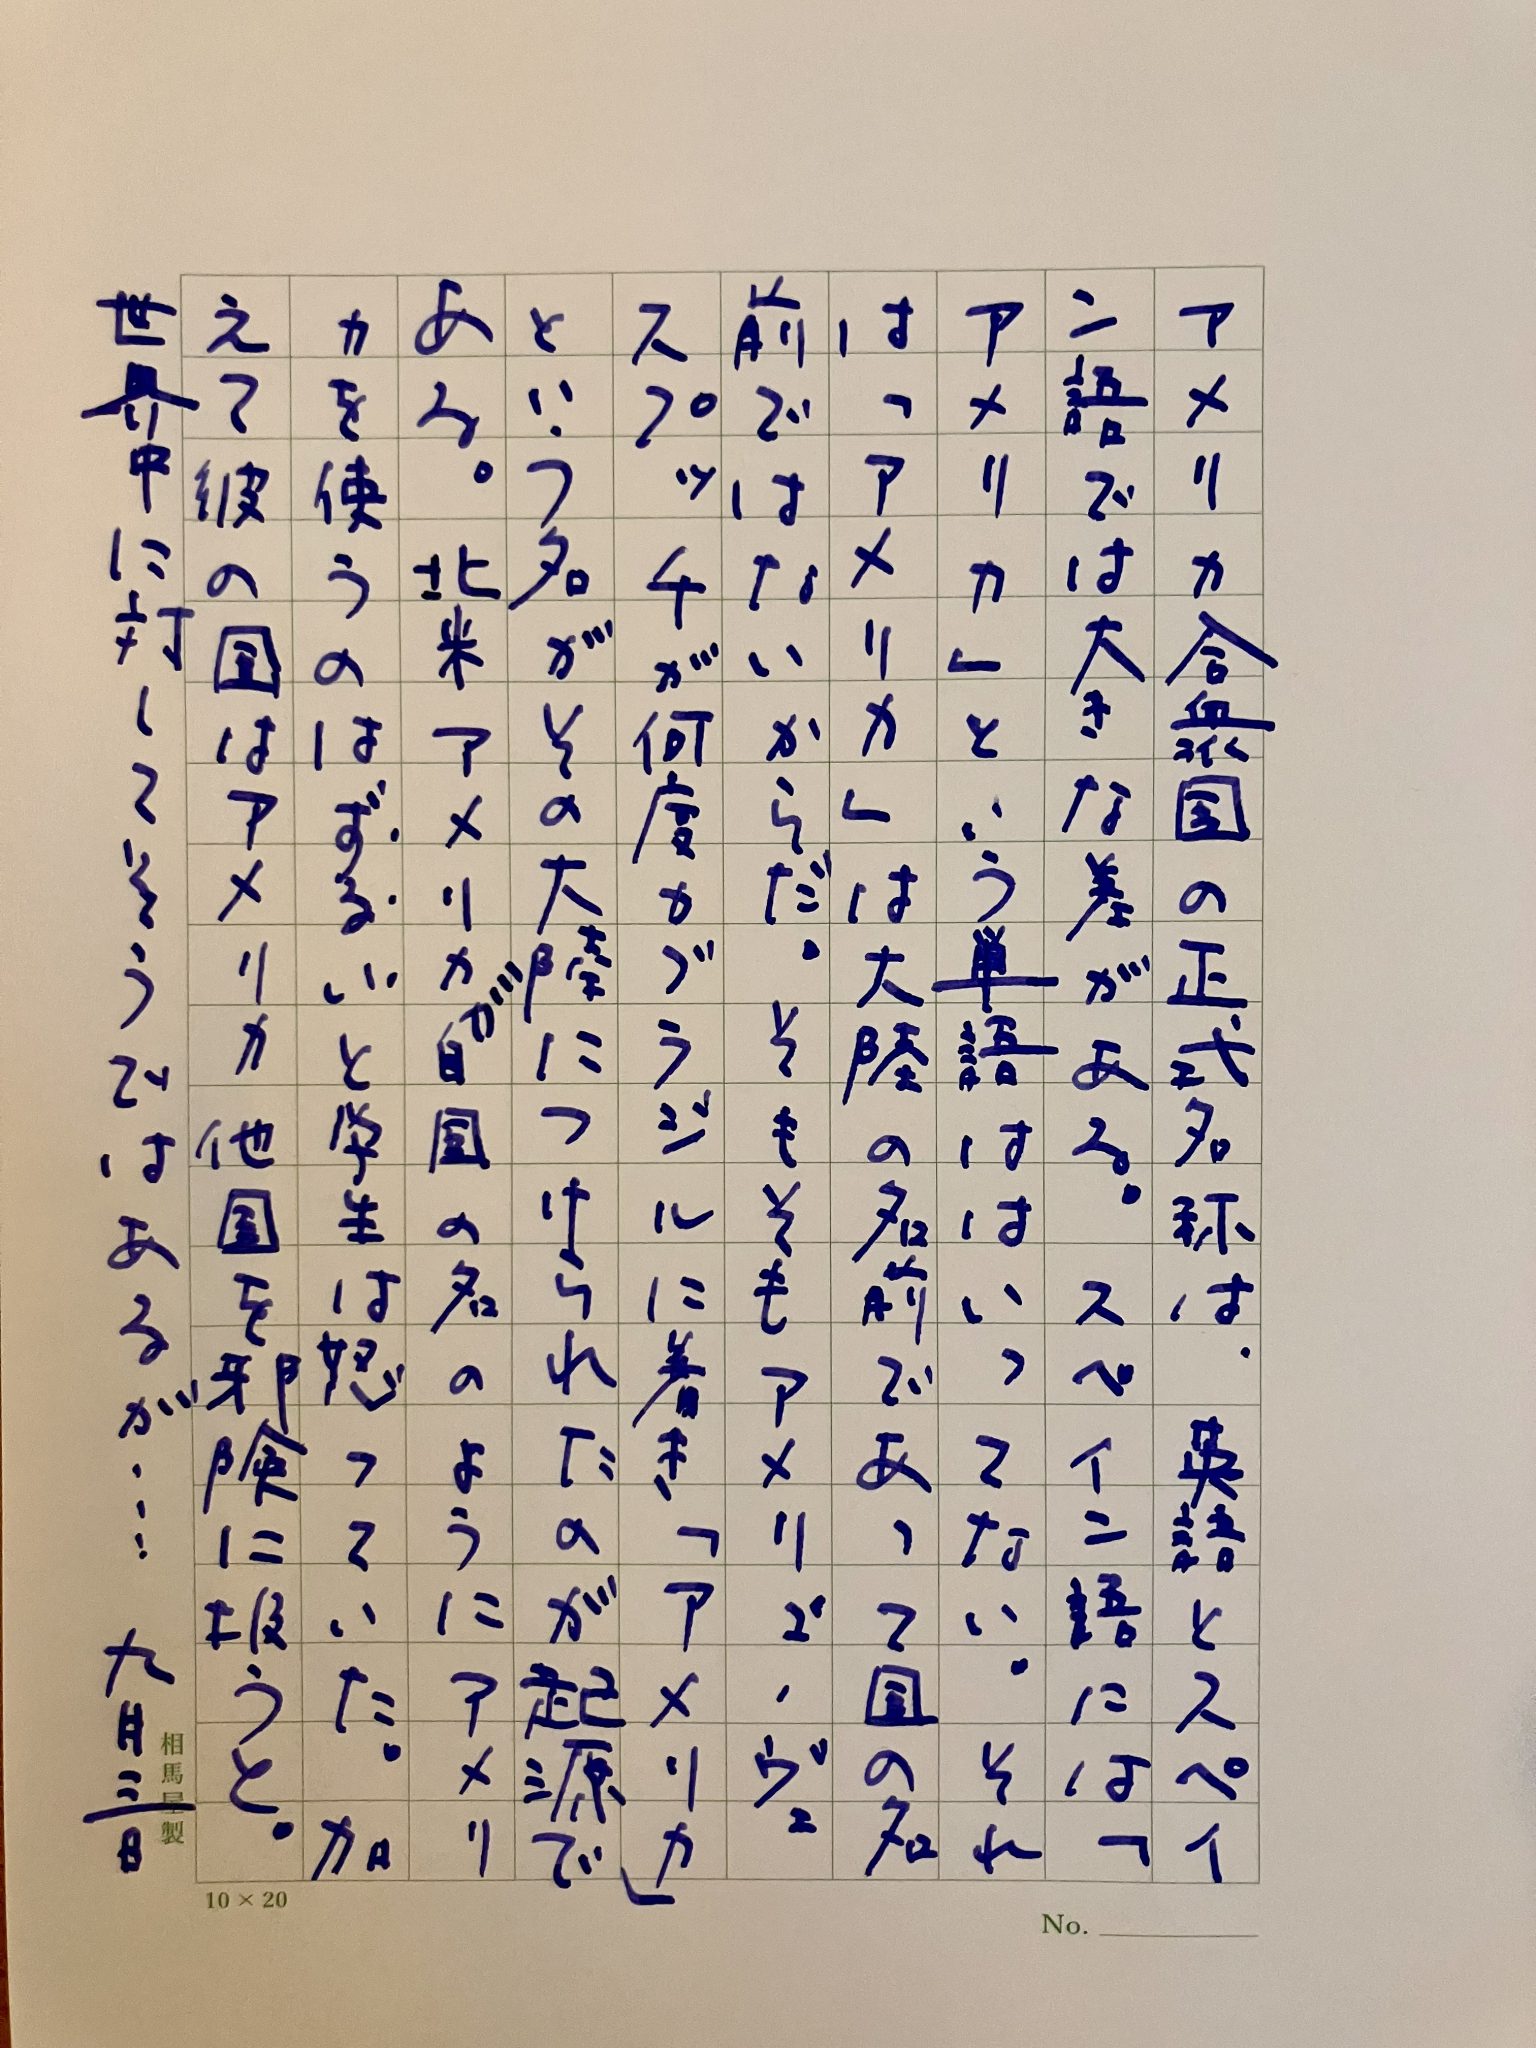 アメリカ合衆国の正式名称は、英語とスペイ
ン語では大きな差がある。スペイン語には「
アメリカ」という単語ははいってない。それ
は「アメリカ」は大陸の名前であって国の名
前ではないからだ。そもそもアメリゴ・ヴェ
スプッチが何度かブラジルに着き「アメリカ」
という名がその大陸につけられたのが起源で
ある。北米アメリカが自国の名のようにアメリ
カを使うのはずるいと学生は怒っていた。加
えて彼の国はアメリカ他国を邪険に扱うと。
世界中に対してそうではあるが…… 九月三日
相馬屋製
10 × 20
No.